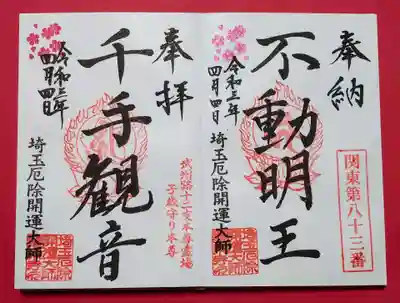 奉納
不動明王
令和三年
四月四日
埼玉厄除開運大師
関東第八十三番
奉拝
千手観音
令和三年
四月四日
埼玉厄除開運大師
武州路十二支本尊霊場
子歳守り本尊